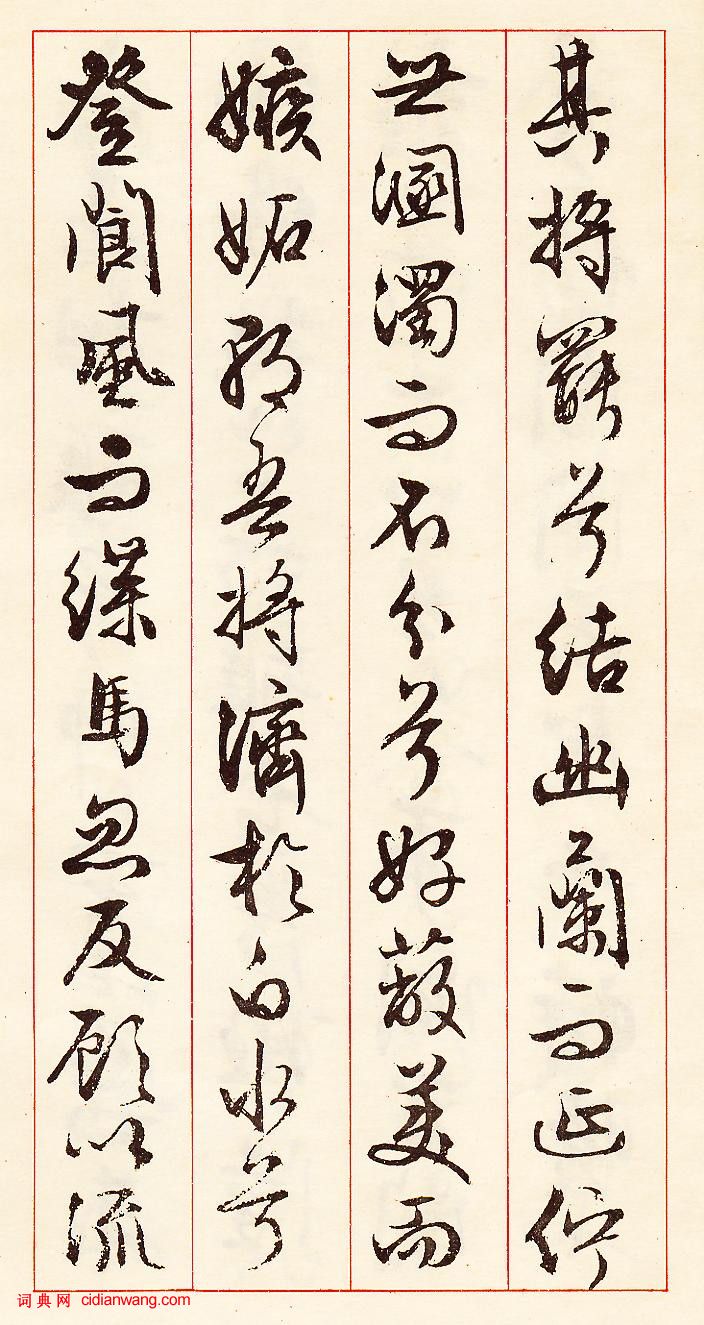 其將罷兮結幽蘭而延佇
世溷濁而不分兮好蔽美而
嫉妒朝吾將濟於白水兮
登閬風而緤馬忽反顧以流
词典网 cidianwang.com